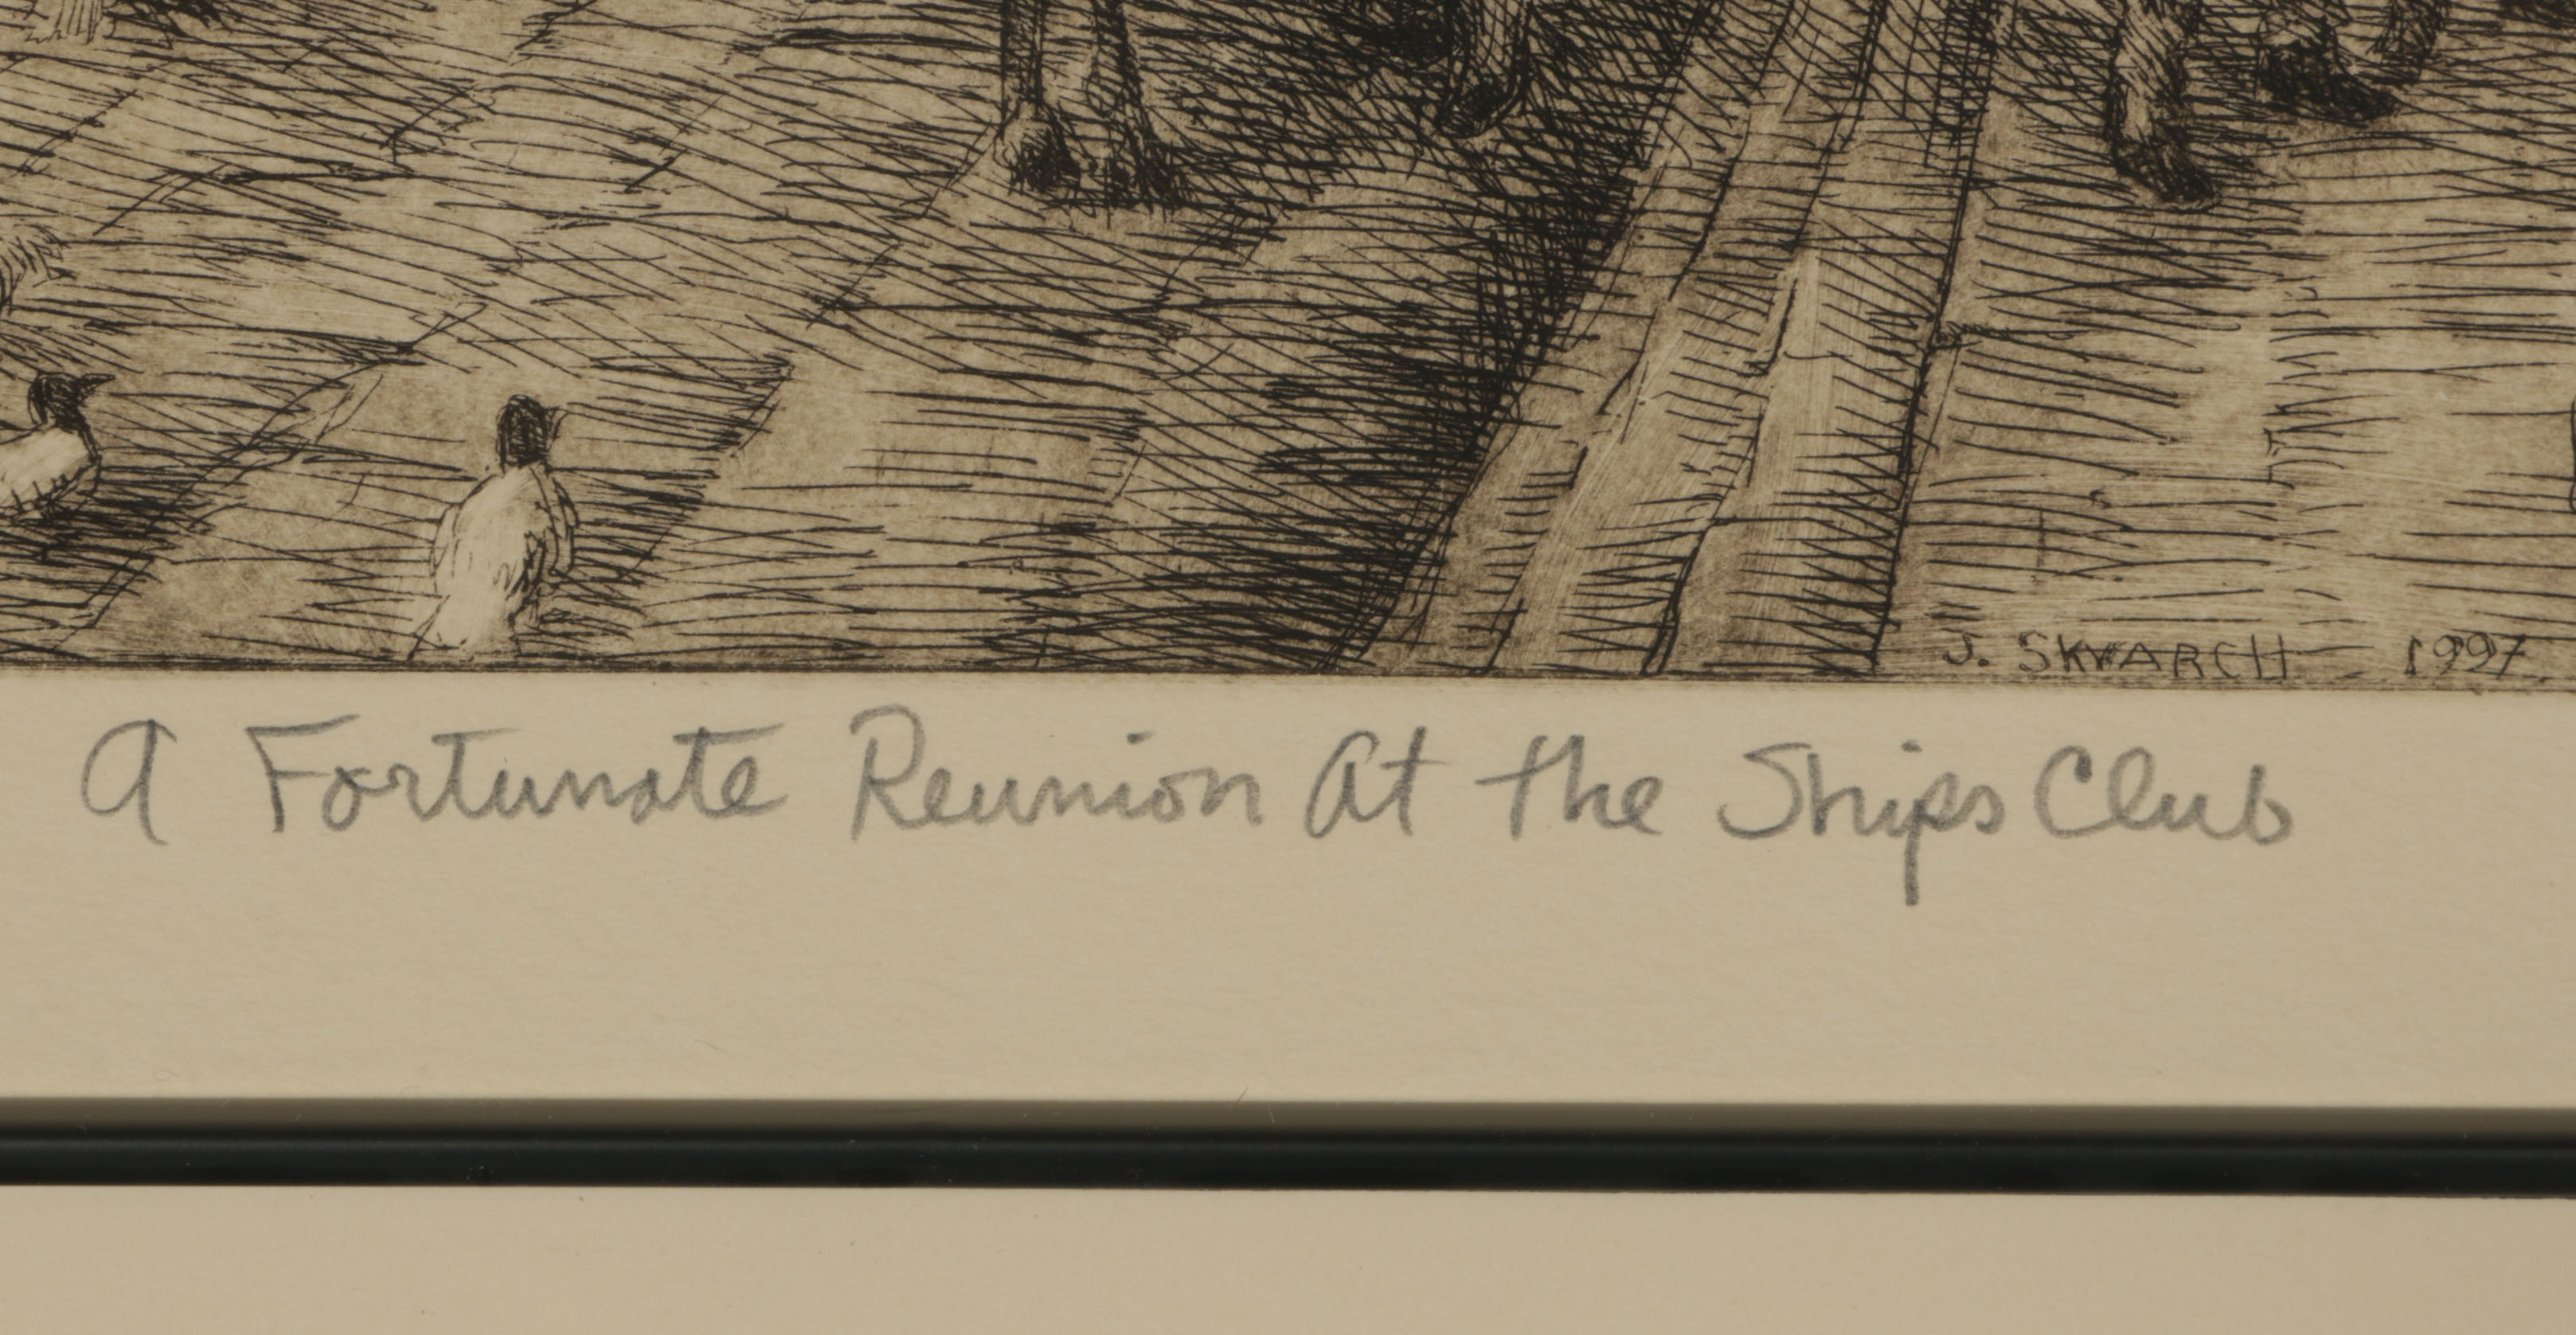 J. SKVARCH - 1997
A Fortunate Reunion At the Ships Club